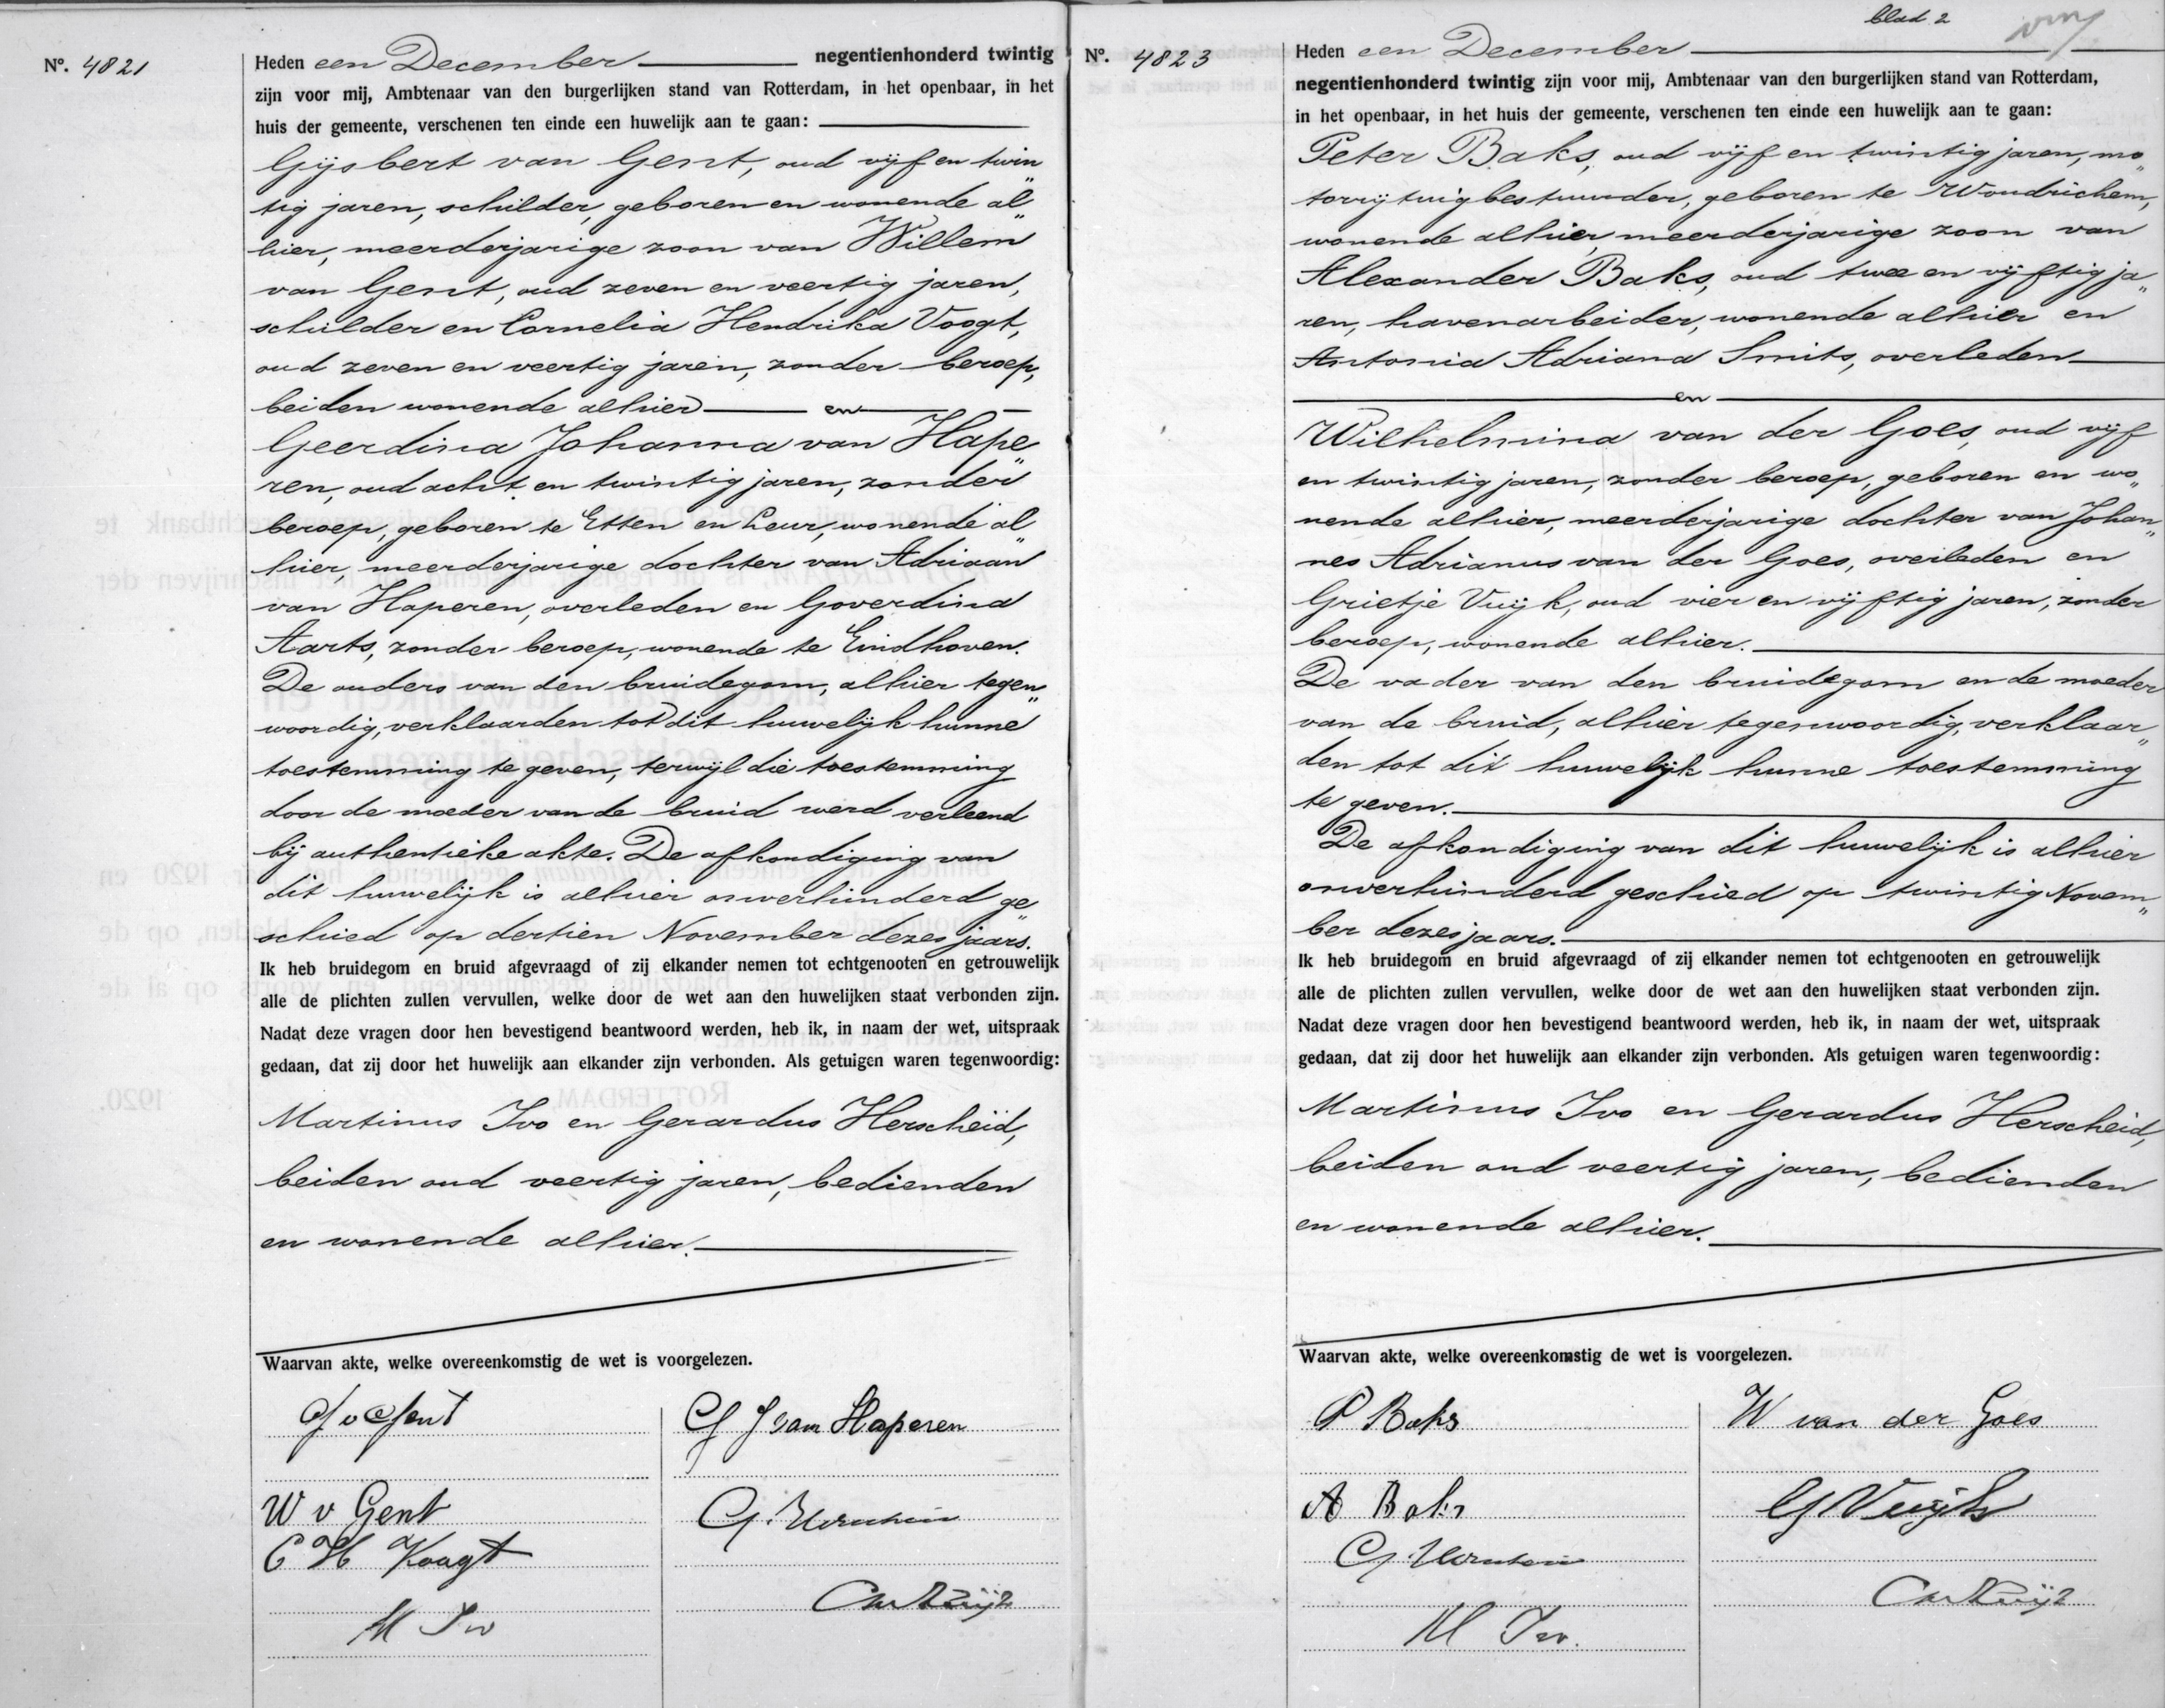 Nº. 4821
Heden een December negentienhonderd twintig
zijn voor mij, Ambtenaar van den burgerlijken stand van Rotterdam, in het openbaar, in het
huis der gemeente, verschenen ten einde een huwelijk aan te gaan:
Gijsbert van Gent, oud vijf en twin„
tig jaren, schilder, geboren en wonende al„
hier, meerderjarige zoon van Willem
van Gent, oud zeven en veertig jaren,
schilder en Cornelia Hendrika Voogt,
oud zeven en veertig jaren, zonder beroep,
beiden wonende alhier en
Geerdina Johanna van Hape„
ren, oud acht en twintig jaren, zonder
beroep, geboren te Etten en Leur, wonende al„
hier, meerderjarige dochter van Adriaan
van Haperen, overleden en Goverdina
Aarts, zonder beroep, wonende te Eindhoven.
De ouders van den bruidegom, alhier tegen„
woordig, verklaarden tot dit huwelijk hunne
toestemming te geven, terwijl die toestemming
door de moeder van de bruid werd verleend
bij authentieke akte. De afkondiging van
dit huwelijk is alhier onverhinderd ge„
schied op dertien November dezes jaars.
Ik heb bruidegom en bruid afgevraagd of zij elkander nemen tot echtgenooten en getrouwelijk
alle de plichten zullen vervullen, welke door de wet aan den huwelijken staat verbonden zijn.
Nadat deze vragen door hen bevestigend beantwoord werden, heb ik, in naam der wet, uitspraak
gedaan, dat zij door het huwelijk aan elkander zijn verbonden. Als getuigen waren tegenwoordig:
Martinus Ivo en Gerardus Herscheid,
beiden oud veertig jaren, bedienden
en wonende alhier.
Waarvan akte, welke overeenkomstig de wet is voorgelezen.
G v Gent
G J van Haperen
W v Gent
C H Voogt
M Ivo
blad 2
Nº. 4823
Heden een December
negentienhonderd twintig zijn voor mij, Ambtenaar van den burgerlijken stand van Rotterdam,
in het openbaar, in het huis der gemeente, verschenen ten einde een huwelijk aan te gaan:
Peter Baks, oud vijf en twintig jaren, mo„
torrijtuigbestuurder, geboren te Woudrichem,
wonende alhier, meerderjarige zoon van
Alexander Baks, oud twee en vijftig ja„
ren, havenarbeider, wonende alhier en
Antonia Adriana Smits, overleden
en
Wilhelmina van der Goes, oud vijf
en twintig jaren, zonder beroep, geboren en wo„
nende alhier, meerderjarige dochter van Johan„
nes Adrianus van der Goes, overleden en
Grietje Vuijk, oud vier en vijftig jaren, zonder
beroep, wonende alhier.
De vader van den bruidegom en de moeder
van de bruid, alhier tegenwoordig, verklaar„
den tot dit huwelijk hunne toestemming
te geven.
De afkondiging van dit huwelijk is alhier
onverhinderd geschied op twintig Novem„
ber dezes jaars.
Ik heb bruidegom en bruid afgevraagd of zij elkander nemen tot echtgenooten en getrouwelijk
alle de plichten zullen vervullen, welke door de wet aan den huwelijken staat verbonden zijn.
Nadat deze vragen door hen bevestigend beantwoord werden, heb ik, in naam der wet, uitspraak
gedaan, dat zij door het huwelijk aan elkander zijn verbonden. Als getuigen waren tegenwoordig:
Martinus Ivo en Gerardus Herscheid,
beiden oud veertig jaren, bedienden
en wonende alhier.
Waarvan akte, welke overeenkomstig de wet is voorgelezen.
P Baks
W van der Goes
A Baks
G Vuijk
M Ivo.